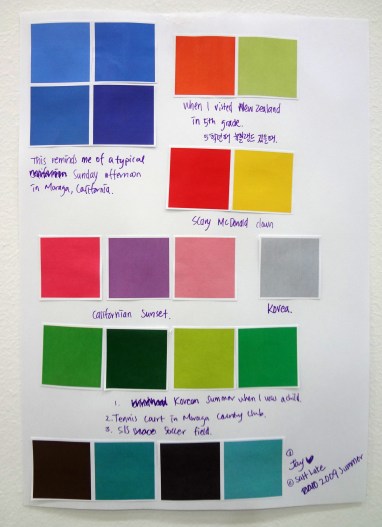 This reminds me of a typical
Sunday afternoon
in Moraga, California.
When I visited New Zealand
in 5th grade.
5학년때 뉴질랜드
Scary McDonald clown
Californian Sunset.
Korea.
1. Korean Summer when I was a child.
2. Tennis court in Moraga Country Club.
3. SIS Soccer field.
Jay ♥
@ Salt Lake
2009 Summer